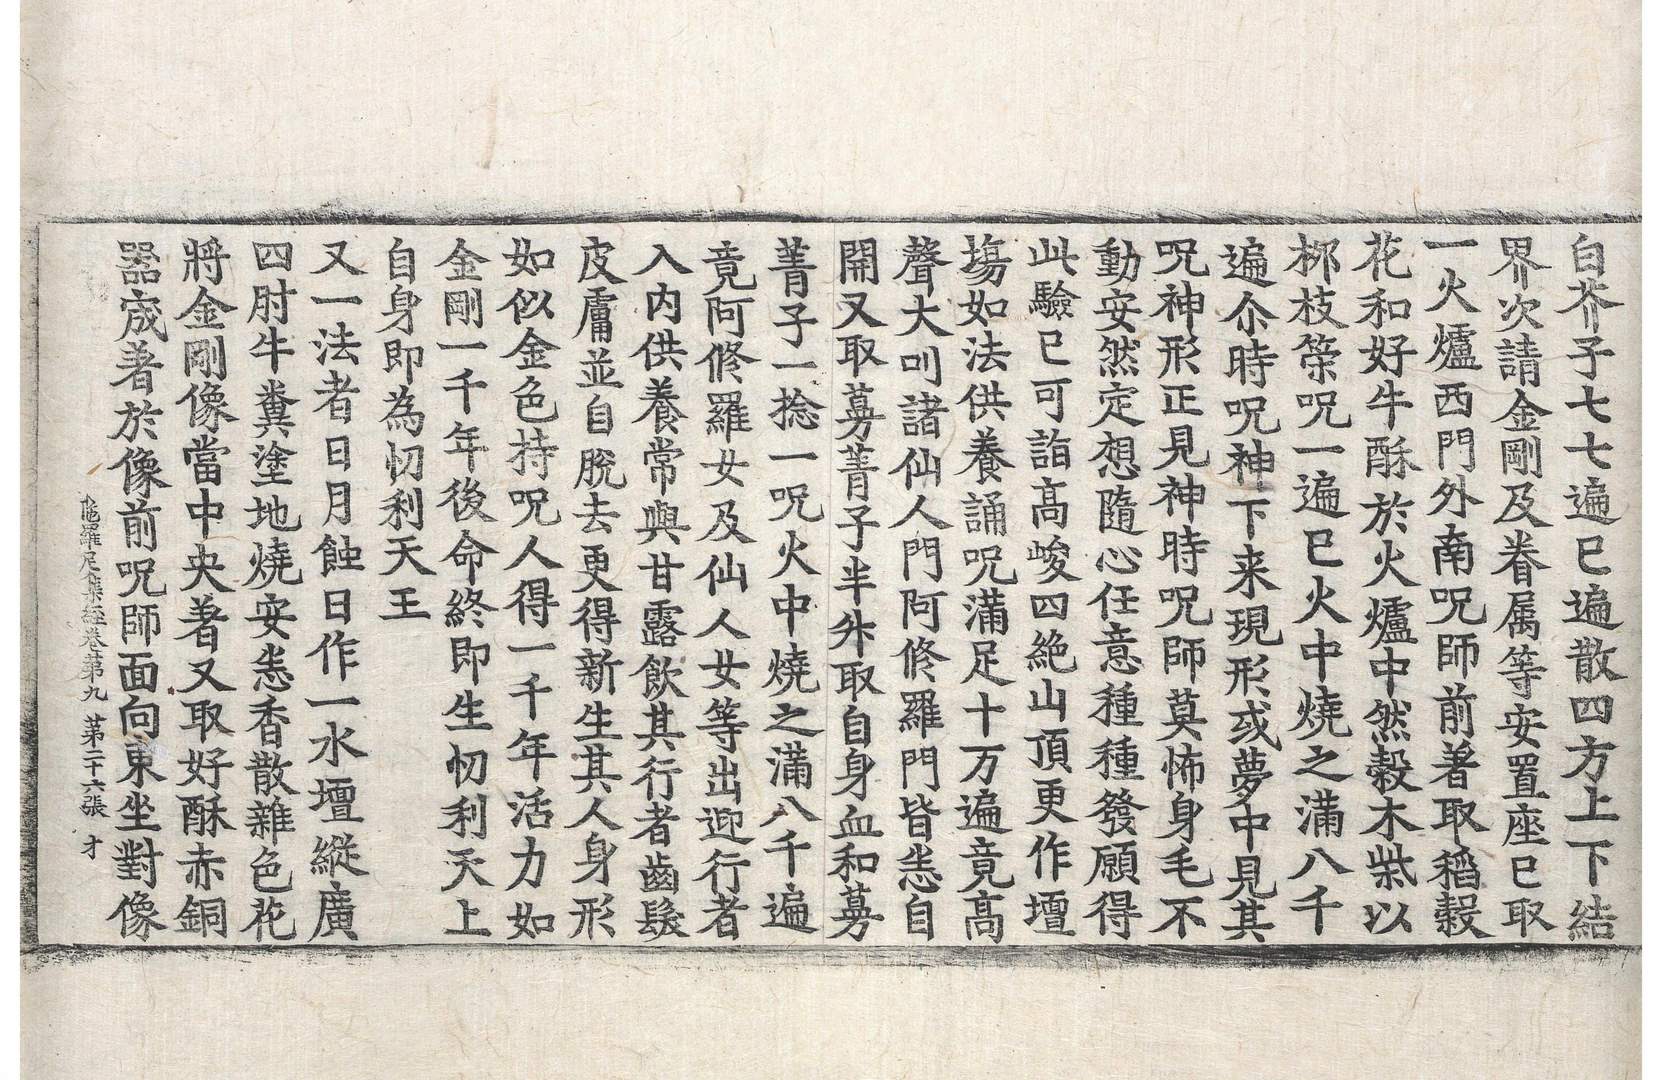 白芥子七七遍已遍散四方上下結
界次請金剛及眷属等安置座已取
一火爐西門外南呪師前著取稻穀
花和好牛酥於火爐中然穀木柴以
梛枝䇿呪一遍已火中燒之滿八千
遍尒時呪神下来現形或夢中見其
呪神形正見神時呪師莫怖身毛不
動安然定想隨心任意種種發願得
此驗已可詣高峻四絶山頂更作壇
塲如法供養誦呪滿足十万遍竟高
聲大呌諸仙人門阿修羅門皆悉自
開又取蔓菁子半升取自身血和蔓
菁子一捻一呪火中燒之滿八千遍
竟阿修羅女及仙人女等出迎行者
入內供養常與甘露飲其行者齒髮
皮膚並自脫去更得新生其人身形
如似金色持呪人得一千年活力如
金剛一千年後命終即生忉利天上
自身即為忉利天王
又一法者日月蝕日作一水壇縱廣
四肘牛糞塗地燒安悉香散雜色花
將金剛像當中央著又取好酥赤銅
器宬著於像前呪師面向東坐對像
陁羅尼集經卷苐九 苐二十六張 才